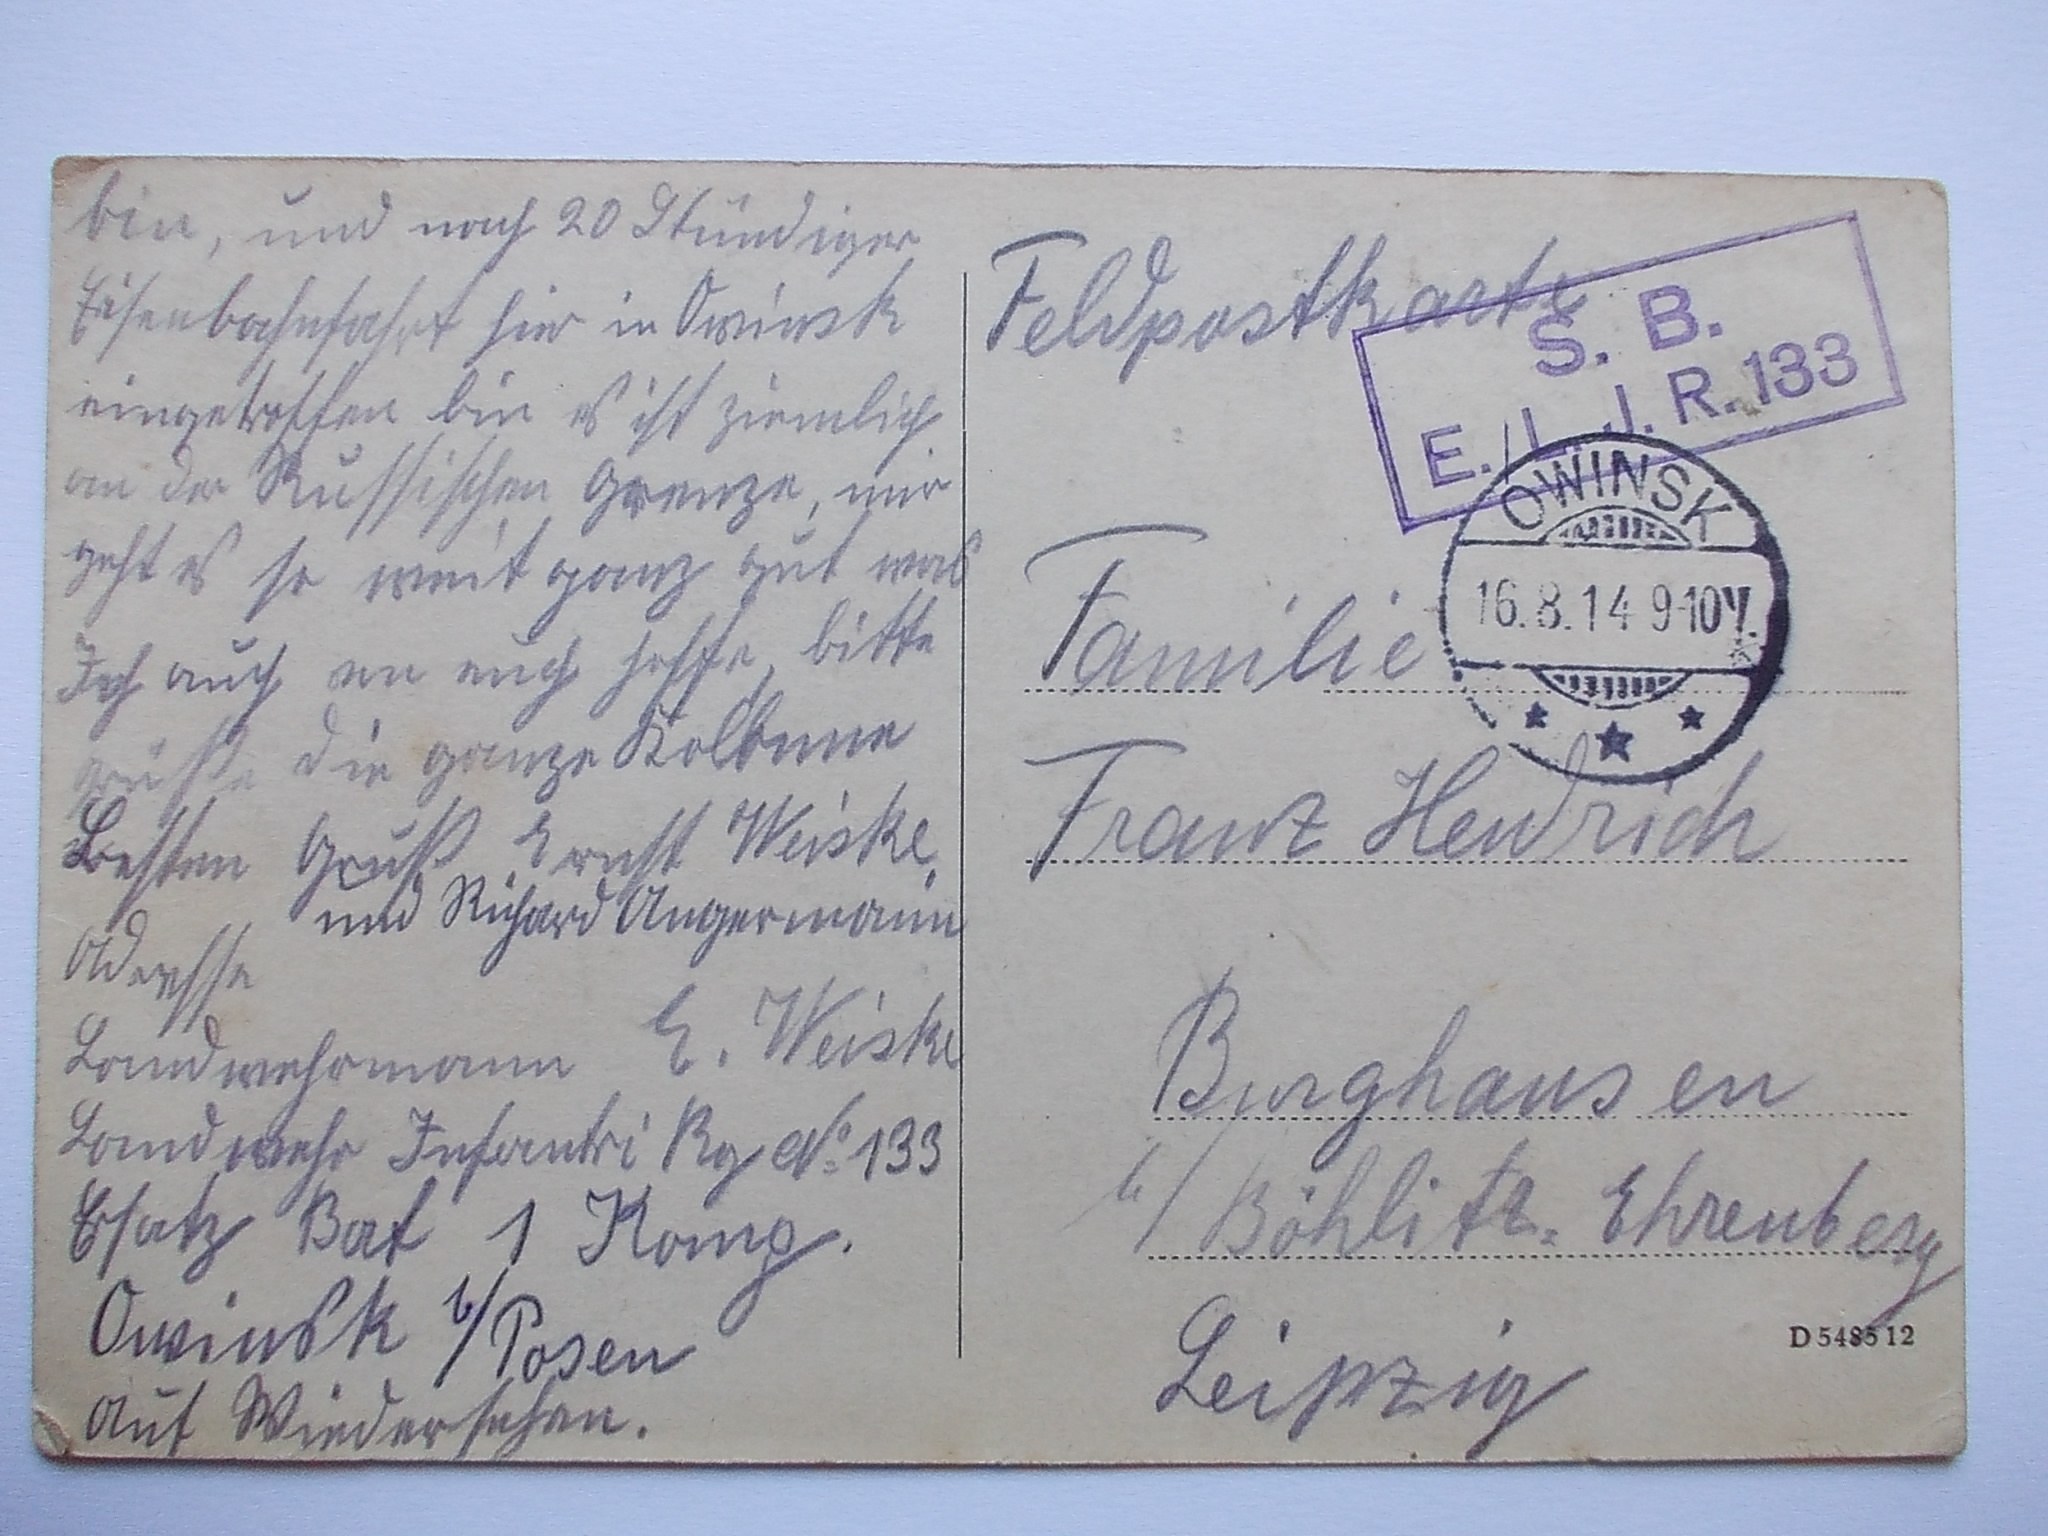 bin, und nach 20 Stündiger
Eisenbahnfahrt hier in Owinsk
eingetroffen bin es ist ziemlich
an der Russischen Grenze, mir
geht es so weit ganz gut was
Ich auch von euch hoffe, bitte
grüße die ganze
Besten Gruß Ernst Weiske,
und Richard Angermann
Adresse
Landwehrmann E. Weiske
Landwehr Infantri Rg No. 133
Ersatz Bat 1 Komp.
Owinsk b/Posen
Auf Wiedersehen.
Feldpostkarte
S. B.
E./L. J. R. 133
OWINSK
16.8.14 9-10V.
Familie
Franz Hendrich
Burghausen
b/Böhlitz. Ehrenberg
Leipzig
D 5485 12